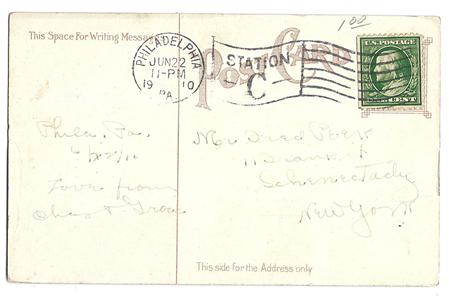 1.00
This Space For Writing Messages
POST CARD
PHILADELPHIA
JUN 22
11-PM
1910
PA.
STATION
C
U.S. POSTAGE
CENT
Phila, Pa.
6/22/10
Love from
Chas & Grace
Mr. Fred Peek
Schenectady
New York
This side for the Address only